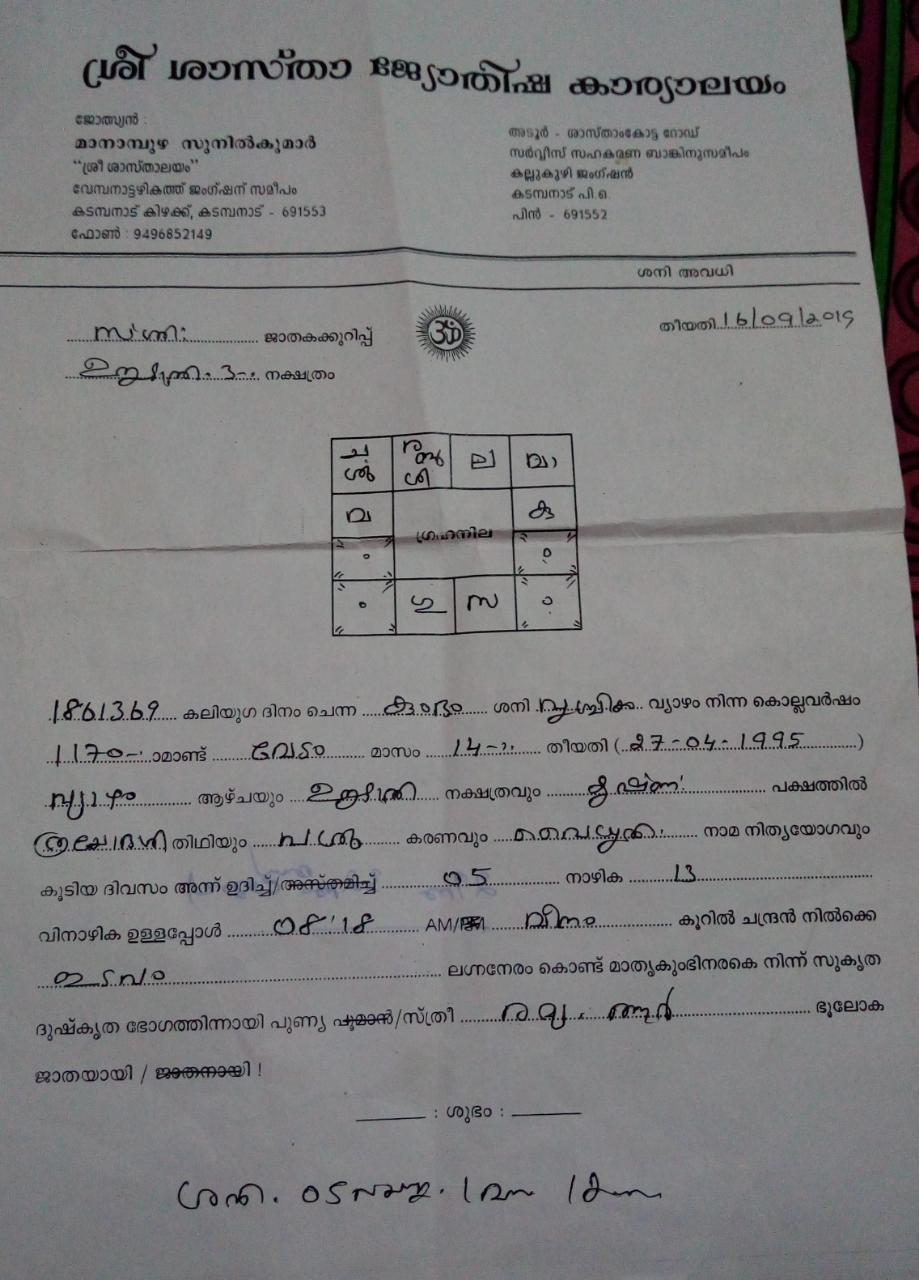 ശ്രീ ശാസ്താ ജ്യോതിഷ കാര്യാലയം
ജ്യോത്സ്യൻ :
മാനാമ്പുഴ സുനിൽകുമാർ
"ശ്രീ ശാസ്താലയം"
വേമ്പനാട്ടഴികത്ത് ജംഗ്ഷന് സമീപം
കടമ്പനാട് കിഴക്ക്, കടമ്പനാട് - 691553
ഫോൺ : 9496852149
അടൂർ - ശാസ്താംകോട്ട റോഡ്
സർവ്വീസ് സഹകരണ ബാങ്കിനുസമീപം
കല്ലുകുഴി ജംഗ്ഷൻ
കടമ്പനാട് പി.ഒ.
പിൻ - 691552
ശനി അവധി
ജാതകക്കുറിപ്പ്
തീയതി 16/09/2019
ഉത്രട്ടാതി 3 നക്ഷത്രം
ച ശു
ര ബു ശി
ല
മാ
വ
കു
ഗ്രഹനില
ഗു
സ
1861369 കലിയുഗ ദിനം ചെന്ന കുംഭം ശനി വൃശ്ചികം വ്യാഴം നിന്ന കൊല്ലവർഷം
1170 ാമാണ്ട് മേടം മാസം 14 തീയതി (27-04-1995)
വ്യാഴം ആഴ്ചയും ഉത്രട്ടാതി നക്ഷത്രവും കൃഷ്ണ പക്ഷത്തിൽ
ത്രയോദശി തിഥിയും പശു കരണവും വൈധൃതി നാമ നിത്യയോഗവും
കൂടിയ ദിവസം അന്ന് ഉദിച്ച്/അസ്തമിച്ച് 05 നാഴിക 13
വിനാഴിക ഉള്ളപ്പോൾ 08'18 AM/PM മീനം കൂറിൽ ചന്ദ്രൻ നിൽക്കെ
ഇടവം ലഗ്നനേരം കൊണ്ട് മാതൃകുംഭിനരകെ നിന്ന് സുകൃത
ദുഷ്കൃത ഭോഗത്തിന്നായി പുണ്യ പുമാൻ/സ്ത്രീ ഭൂലോക
ജാതയായി / ജാതനായി !
: ശുഭം :